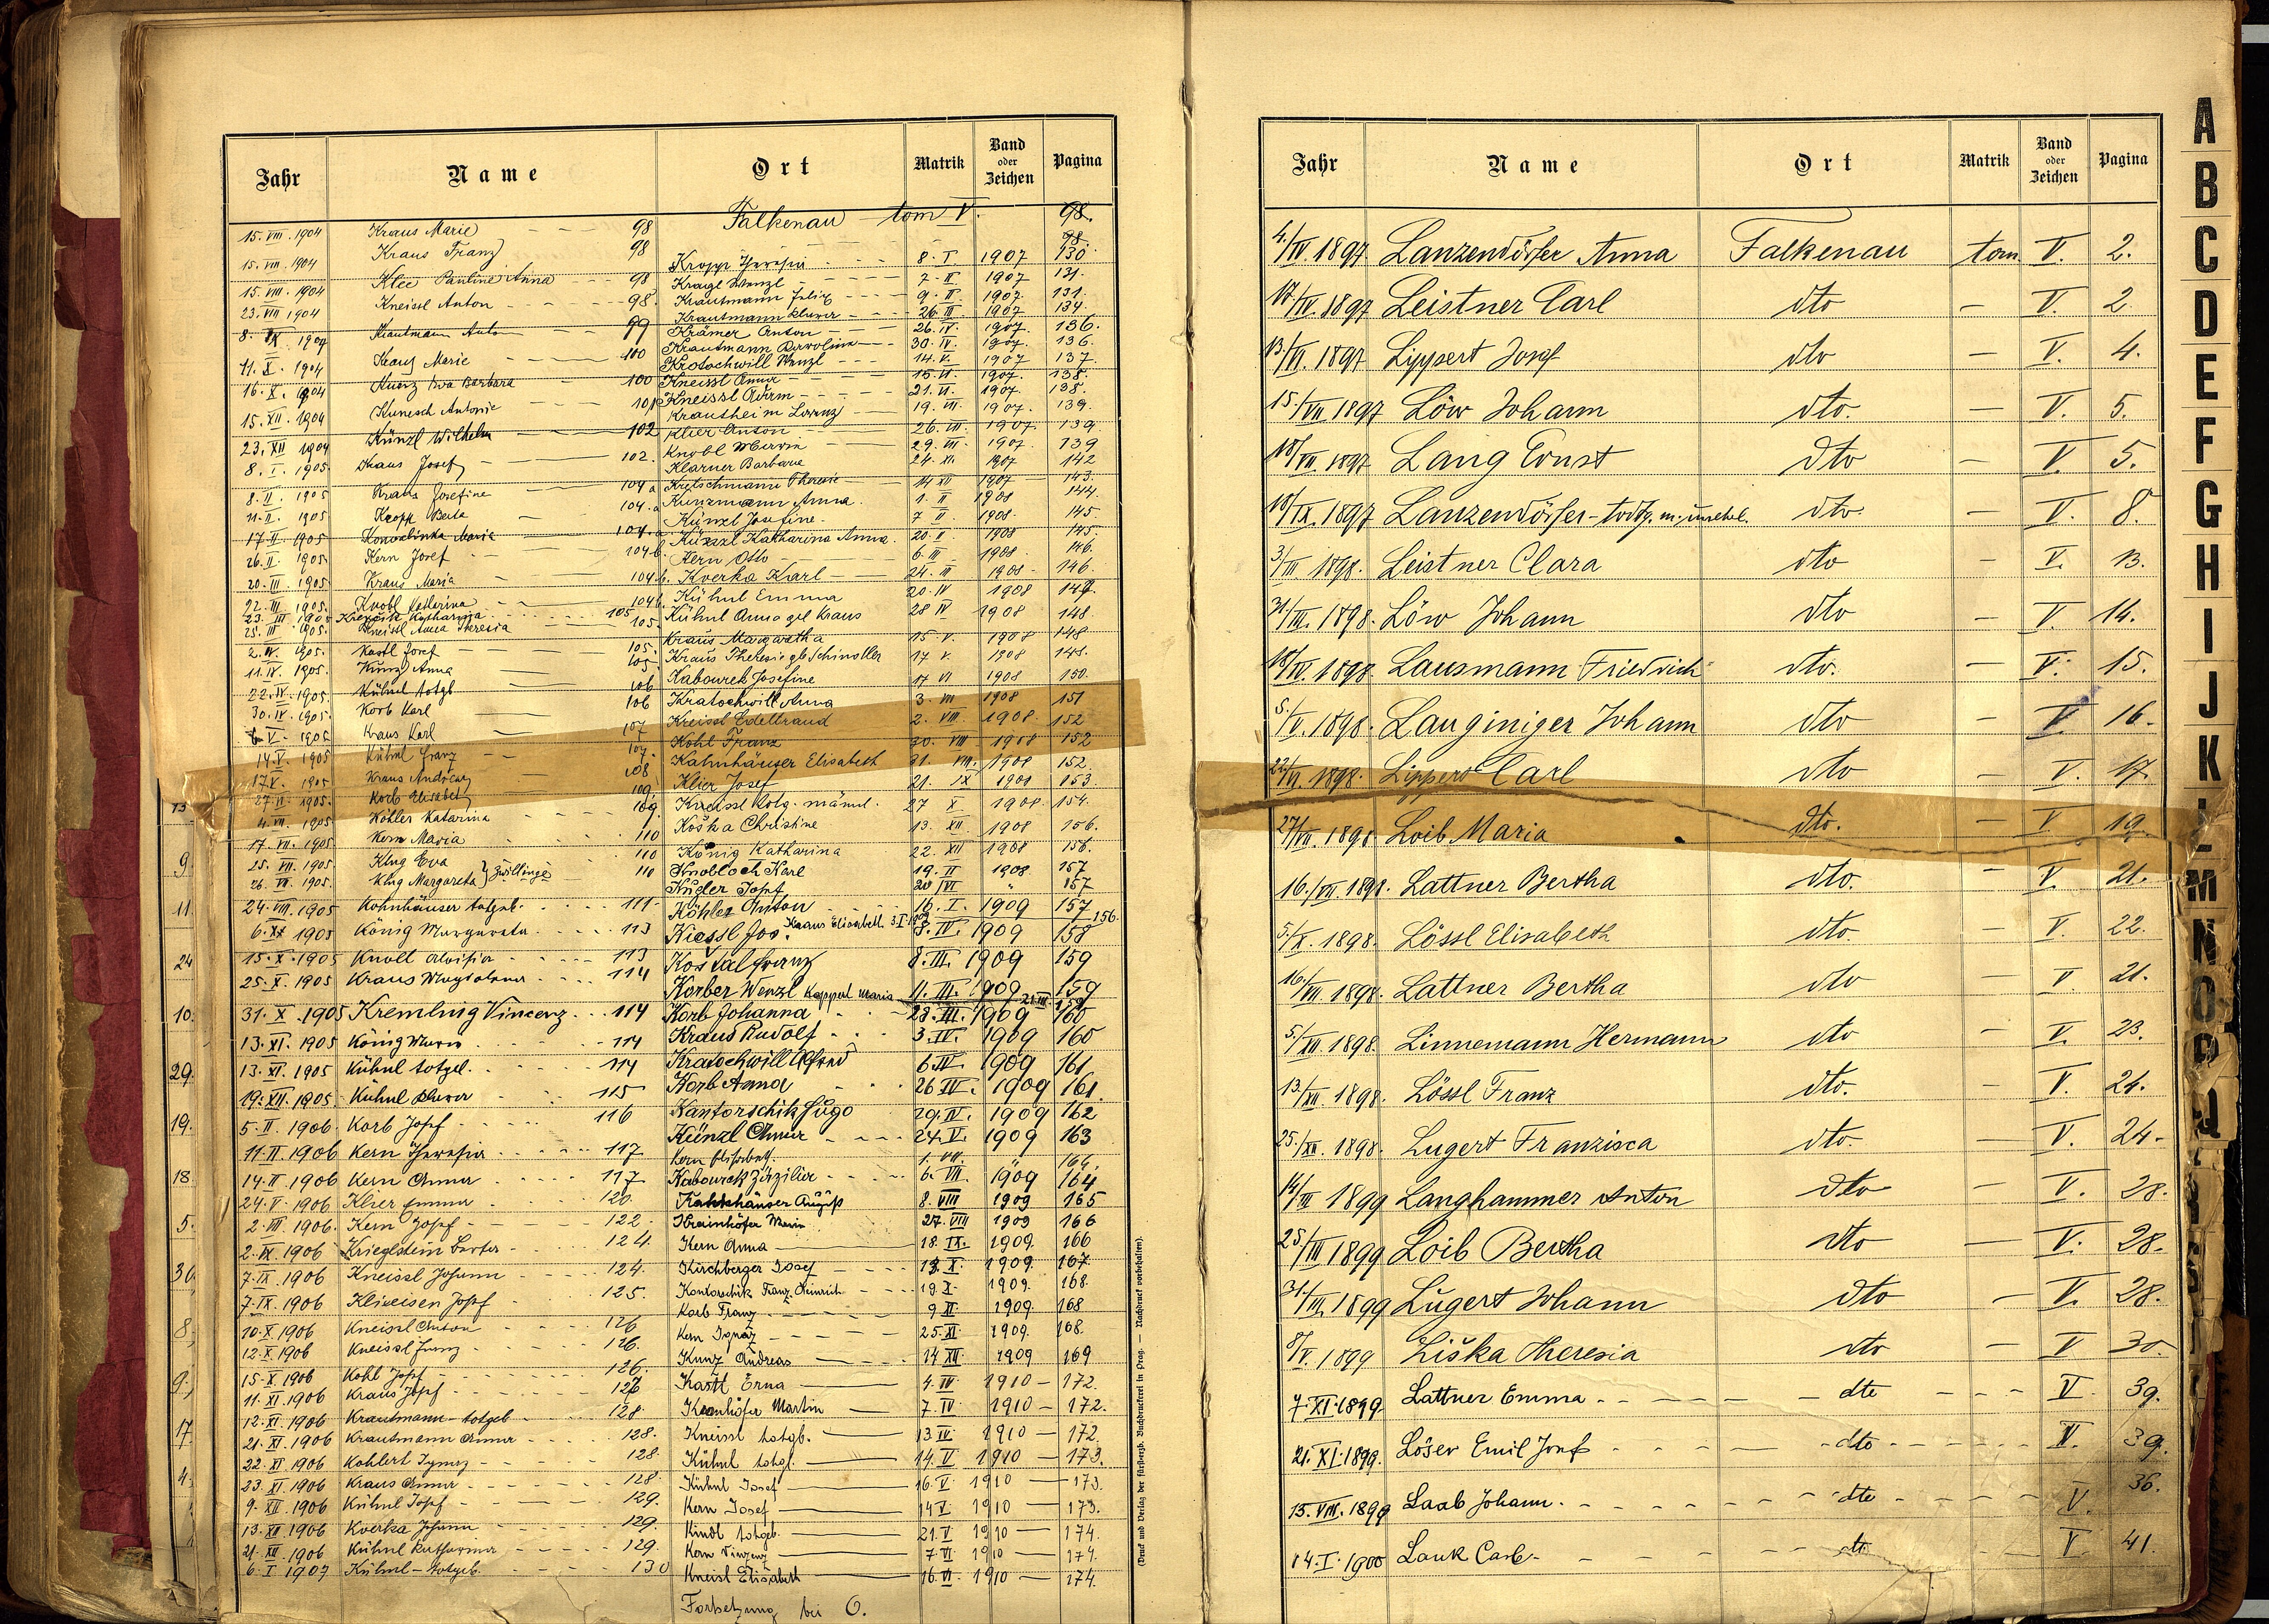 Jahr Name Ort Matrik Band oder Zeichen Pagina
Falkenau tom V. 98.
15. VIII. 1904 Kraus Marie 98
15. VIII. 1904 Kraus Franz 98 98.
15. VIII. 1904 Klee Pauline Anna 98
23. VIII 1904 Kneissl Anton 98
8. IX. 1904 Krautmann 99
11. X. 1904 Kraus Marie 100
16. X. 1904 Kunz Eva Barbara 100
15. XII. 1904 Kunesch Antonie 101
23. XII 1904 Künzl Wilhelm 102
8. I. 1905 Kraus Josef 102.
8. II. 1905 Kraus Josefine 104 a
11. II. 1905 Kropp Berta 104. a
17. II. 1905 Maria 104. a
26. II. 1905 Kern Josef 104 b.
20. III. 1905 Kraus Maria 104 b.
22. III. 1905. Knobl Katherina 104 b.
23. III 1905 Katharina 105
25. III. 1905. Kneissl Anna Theresia 105
2. IV. 1905. Kastl Josef 105.
11. IV. 1905. Kunz Anna 105
22. IV. 1905. Kühnl totgb 106
30. IV. 1905. Korb Karl 106
V. 1905 Kraus Karl 107
14. V. 1905 Kühnl Franz 107.
17. V. 1905 Kraus Andreas 108
1905. Korb Elisabet 109.
4. VII. 1905 Köhler Katarina 109
17. VII. 1905 Kern Maria 110
25. VII. 1905. Klug Eva 110
26. VII. 1905. Klug Margareta } Zwillinge 110
24. VIII. 1905 Kohnhäuser totgeb. 111
6. XI 1905 König Margareta 113
15. X. 1905 Knoll Aloisia 113
25. X. 1905 Kraus Magdalena 114
31. X. 1905 Kremling Vincenz 114
13. XI. 1905 König Maria 114
13. XI. 1905 Kühnl totgeb. 114
19. XII. 1905. Kühnl 115
5. II. 1906 Korb Josef 116
11. II. 1906 Kern Theresia 117
14. II. 1906 Kern Anna 117
24. V. 1906 Klier Emma 120.
2. VIII. 1906. Kern Josef 122
2. IX. 1906 Krieglstein 124
7. IX. 1906 Kneissl Johann 124.
7. IX. 1906 Kliveisen Josef 125.
10. X. 1906 Kneissl Anton 126
12. X. 1906 Kneissl Franz 126.
15. X. 1906 Kohl Josef 126.
11. XI. 1906 Kraus Josef 126
12. XI. 1906 Krautmann totgeb 128
21. XI. 1906 Krautmann Anna 128.
22. XI. 1906 Kohlert Ignaz 128
23. XI. 1906 Kraus Anna 128
9. XII. 1906 Kühnl Josef 129.
13. XII. 1906 Kverka Johann 129.
21. XII. 1906 Kühnl Katharina 129.
6. I. 1907 Kühnl totgeb. 130
Kropp Theresia 8. I 1907 130
Kragl Wenzl 7. II 1907 131.
Krautmann Felix 9. II 1907. 131.
Krautmann 26. III 1907 134
Krämer Anton 26. IV. 1907. 136.
Krautmann 30. IV. 1907. 136.
Krotochwill Wenzl 14. V. 1907 137.
Kneissl Anna 15. VI. 1907. 138.
Kneissl 21. VI. 1907. 138.
Krautheim Lorenz 19. VII. 1907. 139.
Klier Anton 26. VII. 1907. 139.
Knobl Maria 29. VII. 1907. 139
Klarner Barbara 24. XI. 1907 142
Kretschmann Theresie 14 XII 1907 143.
Kunzmann Anna. 1. II 1908 144.
Künzl Josefine. 7 II 1908. 145
Künzl Katharina Anna. 20 II 1908 145.
Kern Otto 6 III 1908. 146.
Kverka Karl 24. III 1908 146.
Kühnl Emma 20. IV 1908 147.
Kühnl Anna gl Kraus 28 IV 1908 148
Kraus Margaretha 15 V. 1908 148
Kraus Theresie gb Schindller 17 V. 1908 148.
Kabourek Josefine 17 VI 1908 150.
Kratochwill Anna 3. VII 1908 151
Kreissl Edeltraud 2. VIII 1908. 152
Kohl Franz 30. VIII 1908 152
Kahnhäuser Elisabeth 31. VIII. 1908 152.
Klier Josef 21. IX 1908 153.
Kneissl totg. männl. 27 X 1908. 154.
Koška Christine 13. XII. 1908 156.
König Katharina 22. XII 1908 156.
Knobloch Karl 19. II 1908 157
Kugler Josef 20/VI " 157
Köhler Anton 16. I. 1909 157
Kraus Elisabeth 3. I 1909 156.
Kiessl Jos. 8. IV. 1909 158
Koštal Franz 8. III. 1909 159
Korber Wenzl 11. III. 1909 159
Kappert Maria 21. III. 159
Korb Johanna 28. III. 1909 160
Kraus Rudolf 3. IV. 1909 160
Kratochwill Alfred 6 IV. 1909 161
Korb Anna 26 IV. 1909 161.
Kantorschik Hugo 29. IV. 1909 162
Künzl Anna 24. V. 1909 163
Kern Elisabeth. 1. VII. " 164.
Kabourek Zäzilia 6. VII. 1909 164
Kahnhäuser August 8. VIII 1909 165
Krainhöfer Maria 27. VIII 1909 166
Kern Anna 18. IX. 1909. 166
Kirchberger Josef 13. X. 1909. 167.
Kontorschik Franz Heinrich 19. X. 1909. 168.
Korb Franz 9. XI 1909. 168
Kern Ignaz 25. XI. 1909. 168.
Kunz Andreas 14 XII. 1909 169
Kastl Erna 4. IV. 1910 172.
Martin 7. IV 1910 172.
Kneissl totgb. 13. IV. 1910 172
Kühnl totgb. 14. V 1910 173.
Kühnl Josef 16. V. 1910 173.
Kern Josef 14 V. 1910 173.
Kindl totgeb. 21. V 1910 174.
Kern Vinzenz 7. VI 1910 174.
Kneisl Elisabeth 16. VI. 1910 174.
Fortsetzung bei O.
(Druck und Verlag der fürsterzb. Buchdruckerei in Prag. — Nachdruck vorbehalten).
13
9
11
24
10.
29.
19.
18
5.
36
8,
9.,
17
4.
Jahr Name Ort Matrik Band oder Zeichen Pagina
4./IV. 1897 Lanzendörfer Anna Falkenau tom. V. 2.
17/IV. 1897 Leistner Carl dto — V. 2.
13/VI. 1897 Lippert Josef dto — V. 4.
15./VII 1897 Löw Johann dto. — V. 5.
18/VII. 1897 Lang Ernst dto — V. 5.
18/IX. 1897 Lanzendörfer - todtg. m. unehel. dto — V. 8.
3/III 1898. Leistner Clara dto — V. 13.
31./III. 1898. Löw Johann dto — V. 14.
18/IV. 1898. Lausmann Friedrich dto. — V. 15.
5./V. 1898. Lauginiger Johann dto — V. 16.
22/VI. 1898. Lippert Carl dto — V. 17.
27/VII. 1898 Loib Maria dto. — V 19.
16./VII. 1898. Lattner Bertha dto. — V. 21.
5./X. 1898. Lössl Elisabeth dto — V. 22.
16./VII. 1898. Lattner Bertha dto — V 21.
5./XII. 1898. Linnemann Hermann dto — V. 23.
13./XII. 1898. Lössl Franz dto. — V. 24.
25./XII. 1898. Lugert Franzisca dto. — V. 24.
14/III 1899 Langhammer Anton dto — V. 28.
25./III 1899 Loib Bertha dto — V. 28.
31./III. 1899 Lugert Johann dto — V. 28.
8/V. 1899 Liška Theresia dto — V 30.
7. XI. 1899. Lattner Emma dto V. 39.
21. XI. 1899. Löser Emil Josef dto V. 39.
13. VIII. 1899 Laab Johann. dto V. 36.
14. I. 1900 Lauk Carl dto V 41.
A
B
C
D
E
F
G
H
I
J
K
L
M
N
O